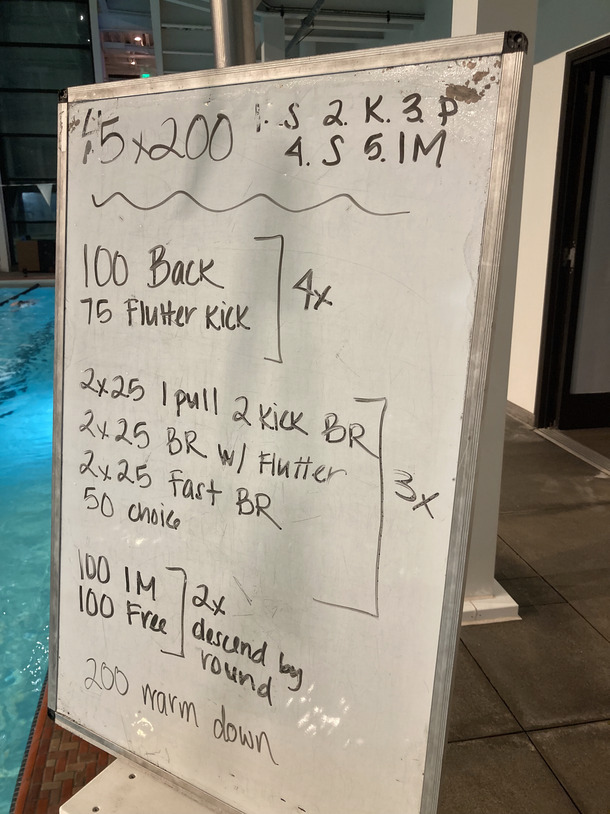 5x200
1. S 2. K. 3. P
4. S 5. IM
100 Back
75 Flutter Kick
4x
2x25 1 pull 2 Kick BR
2x25 BR w/ Flutter
2x25 Fast BR
50 choice
3x
100 IM
100 Free
2x
descend by
round
200 warm down